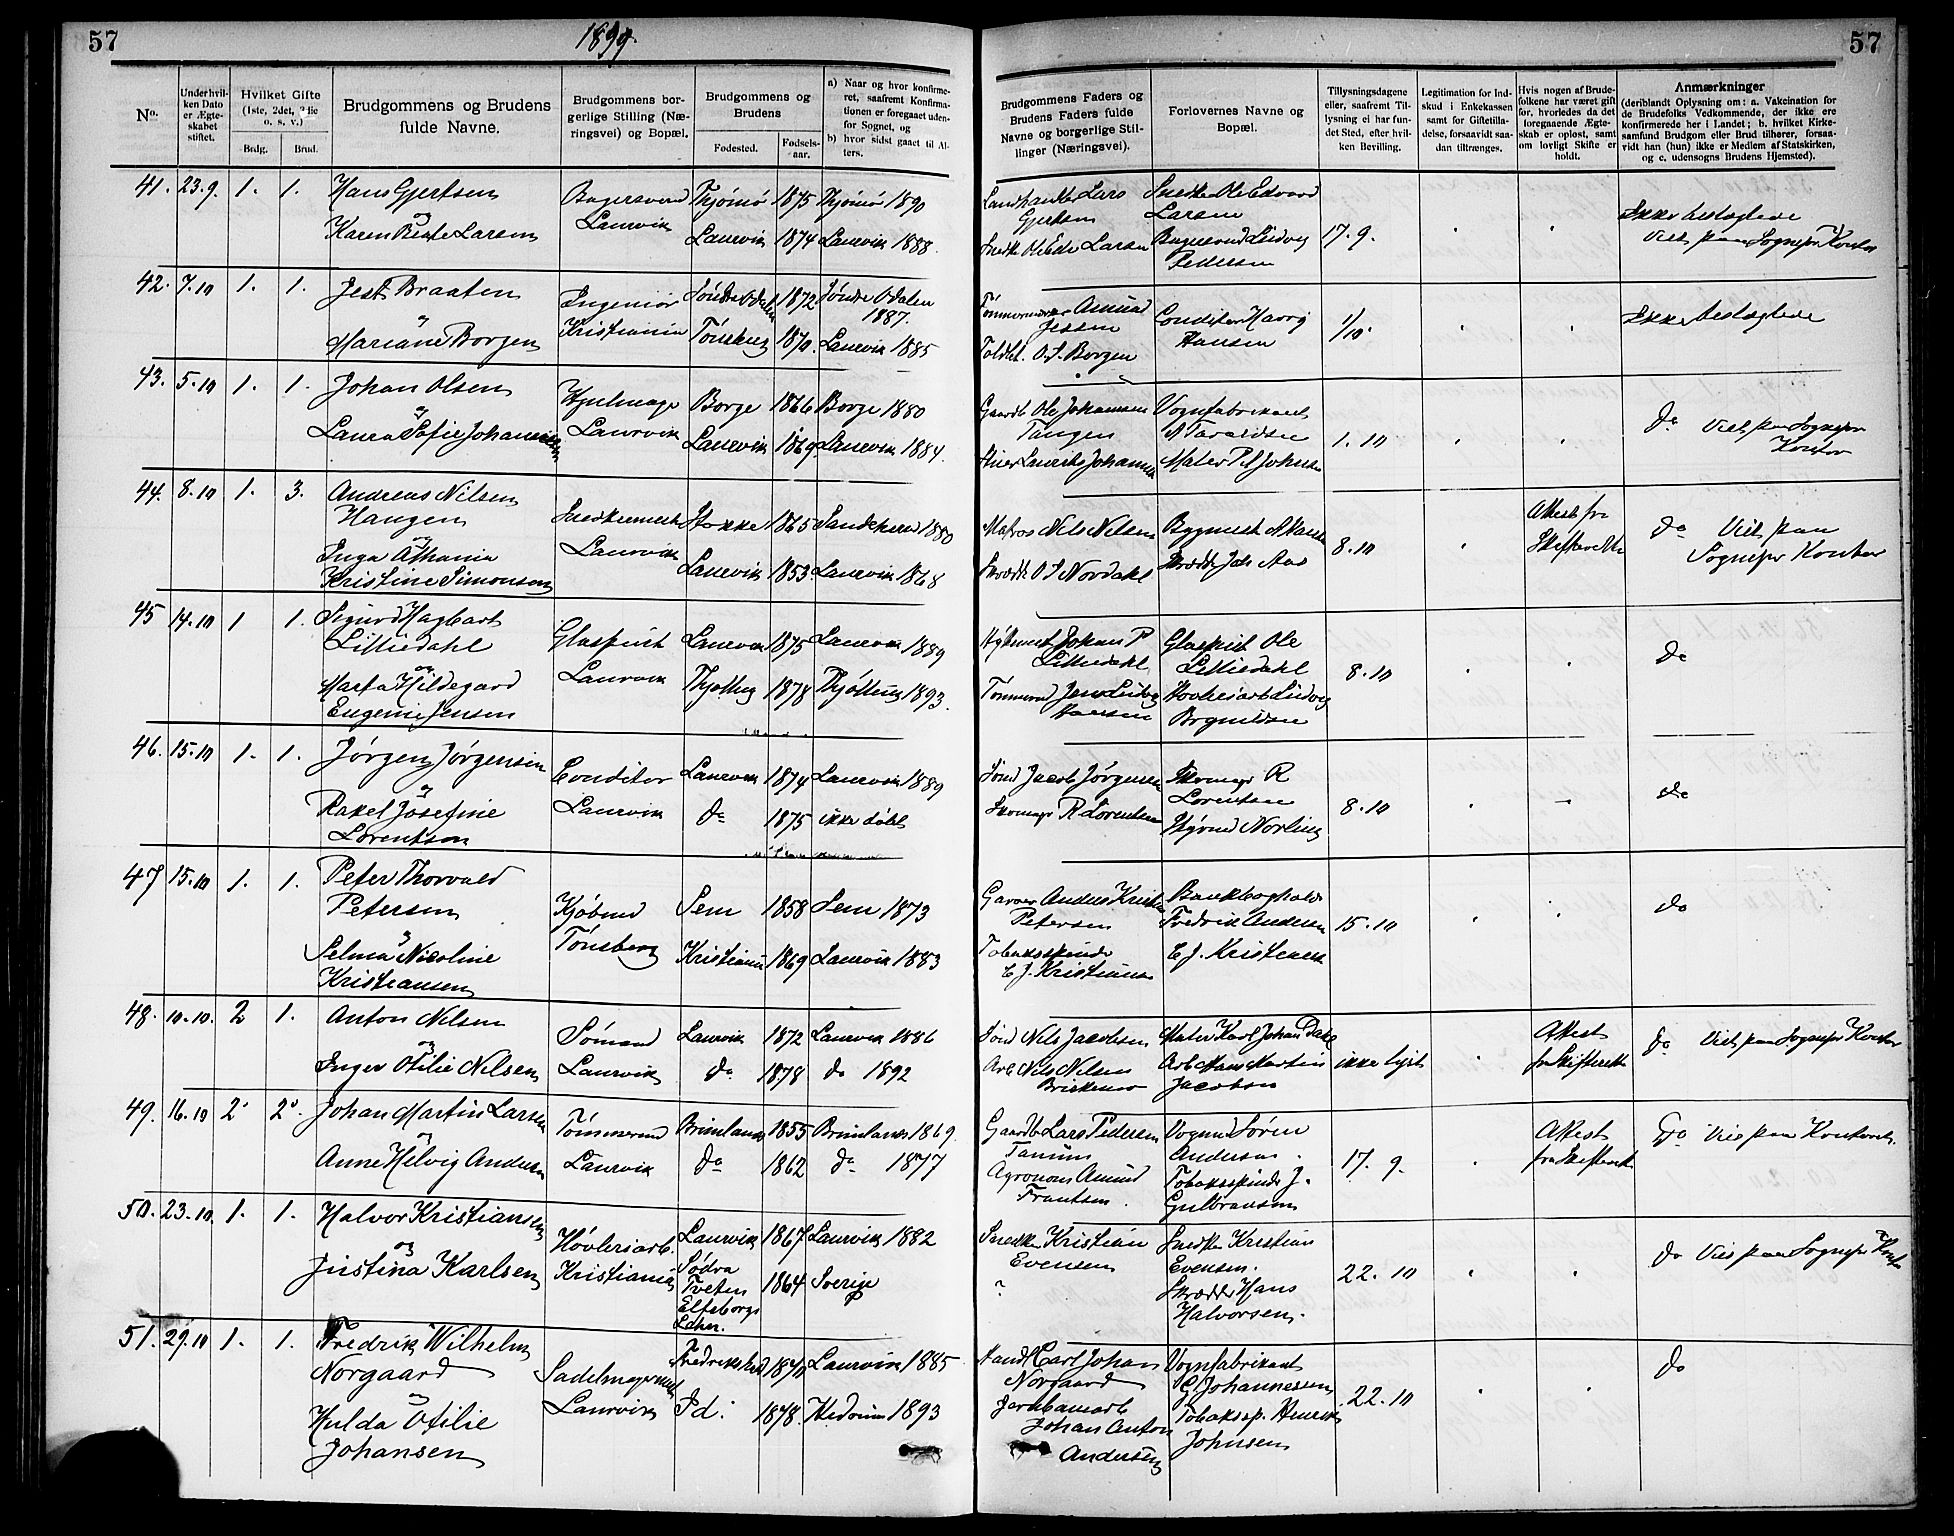 57
1899.
57
No.
Under hvilken Dato er Ægteskabet stiftet.
Hvilket Gifte (1ste, 2det, 3die o. s. v.)
Brdg.
Brud.
Brudgommens og Brudens fulde Navne.
Brudgommens borgerlige Stilling (Næringsvei) og Bopæl.
Brudgommens og Brudens
Fødested.
Fødselsaar.
a) Naar og hvor konfirmeret, saafremt Konfirmationen er foregaaet udenfor Sognet, og
b) hvor sidst gaaet til Alters.
Brudgommens Faders og Brudens Faders fulde Navne og borgerlige Stillinger (Næringsvei).
Forlovernes Navne og Bopæl.
Tillysningsdagene eller, saafremt Tillysning ei har fundet Sted, efter hvilken Bevilling.
Legitimation for Indskud i Enkekassen samt for Giftetilladelse, forsaavidt saadan tiltrænges.
Hvis nogen af Brudefolkene har været gift før, hvorledes da det foregaaende Ægteskab er opløst, samt om lovligt Skifte er holdt.
Anmærkninger
(deriblandt Oplysning om: a. Vakcination for de Brudefolks Vedkommende, der ikke ere konfirmerede her i Landet; b. hvilket Kirkesamfund Brudgom eller Brud tilhører, forsaavidt han (hun) ikke er Medlem af Statskirken, og c. udensogns Brudens Hjemsted).
41. 23.9. 1. 1. Hans Gjertsen
og
Karen Beate Larsen
Bagersvend
Laurvik
Thjømø 1875 Thjømø 1890
Laurvik 1874 Laurvik 1888.
Landhandler Lars
Gjertsen
Snedker Ole Edvard
Larsen
Bagersvend Ludvig
Pedersen
17.9.
Ikke beslægtede
Viet paa Sognepr Kontor
42. 7.10 1. 1. Jest Braaten
og
Mariane Borgen
Ingeniør
Kristiania
Søndre Odalen 1872 Søndre Odalen
1887.
Tønsberg 1870. Laurvik 1885
Amund
Jessen
Toldbt. O. S. Borgen
Conditor Harry
Hansen
1/10
Ikke beslægtede
43. 5.10 1. 1. Johan Olsen
og
Laura Sofie Johannesen
Hjulmager
Laurvik
Borge 1866 Borge 1880
Laurvik 1869 Laurvik 1884.
Gaardb Ole Johannesen
Tangen
Vognfabrikant
Mater P. A. Johnsen
1.10
Do Viet paa Sognepr
Kontor
44. 8.10 1. 3. Andreas Nilsen
Haugen
og
Inga Athania
Kristine Simonsen
Snedkermest
Laurvik
Stokke 1865 Sandeherred 1880
Laurvik 1853 Laurvik 1868
Matros Nils Nilsen
Skrædder O. S. Nordahl
Bygmest A Hansen
Skrædder Joh Aas
8.10
Attest fra
Skifteretten
Do Viet paa
Sognepr Kontor
45 14.10 1 1. Sigurd Hagbart
Lilliedahl
og
Marta Hildegard
Eugenie Jensen
Glaspust
Laurvik
Laurvik 1875 Laurvik 1889
Thjølling 1878 Thjølling 1893.
Johan P
Lilliedahl
Tømmermd Jens Ludvig
Hansen
Glaspust Ole
Lilliedahl
Høvleriarb Ludvig
8.10
Do
46. 15.10 1. 1. Jørgen Jørgensen
og
Rakel Josefine
Lorentsen
Conditor
Laurvik
Laurvik 1874 Laurvik 1889
Do 1875 ikke døbt
Sømd Jacob Jørgensen
Skomagr R Lorentsen
Skomagr R
Lorentsen
Styrmd Norling
8.10
Do
47 15.10 1. 1. Peter Thorvald
Petersen
og
Selma Nicoline
Kristiansen
Kjøbmd
Tønsberg
Sem 1858 Sem 1873
Kristiania 1869 Laurvik 1883
Garver Anders Kristian
Petersen
Tobaksspinder
C J. Kristiansen
Bankbogholder
Fredrik Andersen
C J. Kristiansen
15.10
Do
48. 10.10. 2 1. Anton Nilsen
og
Inger Otilie Nilsen
Sømand
Laurvik
Laurvik 1872 Laurvik 1886
Do 1878 Do 1892
Sømd Nils Jacobsen
Arb Nils Nilsen
Mater Karl Johan
Arb Hans Martin
Jacobsen
ikke lyst
Attest
fra Skifterett
Do Viet paa Sognepr Kontor
49. 16.10 2. 2. Johan Martin Larsen
og
Anne Helvig Andersen
Tømmermd
Laurvik
Brunlanes 1855 Brunlanes 1869.
Do 1862 Do 1877
Gaardb Lars Pedersen
Tanum
Agronom Amund
Frantsen
Vognmd Søren
Andersen
Tobaksspinder J.
Gulbransen
17.9.
Attest
fra Skifterett
Do Viet paa Kontoret.
50. 23.10. 1. 1. Halvor Kristiansen
og
Justina Karlsen
Høvleriarb.
Kristiania
Laurvik 1867 Laurvik 1882
Södra
Tveten
Elfsborgs
Lehn.
1864 Sverige
Snedker Kristian
Evensen
?
Snedker Kristian
Evensen.
Skrædder Hans
Halvorsen.
22.10
Do Viet paa Sognepr Kontor
51. 29.10 1. 1. Fredrik Wilhelm
Norgaard
og
Hulda Otilie
Johansen
Sadelmagermest
Laurvik
Fredrikshald 1870 Laurvik 1885
Do 1878. Hedrum 1893
Carl Johan
Norgaard
Johan Anton
Andersen
Vognfabrikant
G. Johannessen
Tobaksp. Henrik
Johnsen
22.10
Do